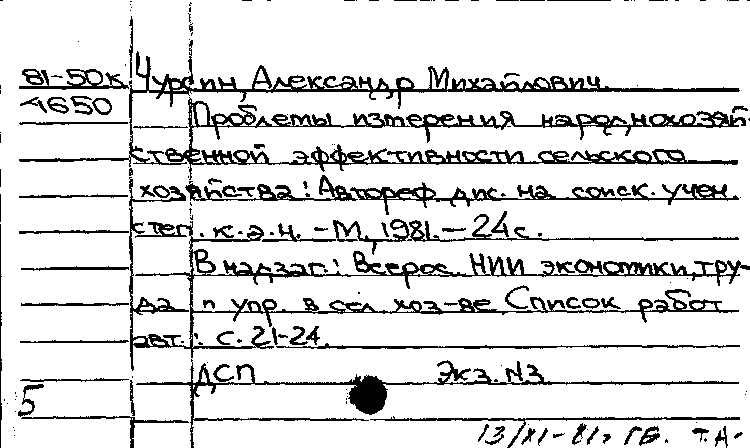 81-50к Чурсин, Александр Михайлович.
4650 Проблемы измерения народнохозяй-
ственной эффективности сельского
хозяйства: Автореф. дис. на соиск. учен.
степ. к.э.н. - М., 1981. - 24 с.
В надзаг.: Всерос. НИИ экономики, тру-
да и упр. в сел. хоз-ве. Список работ
авт.: с. 21-24.
ДСП Экз. N3
5
13/XI-81г. ГБ. Т.Д.